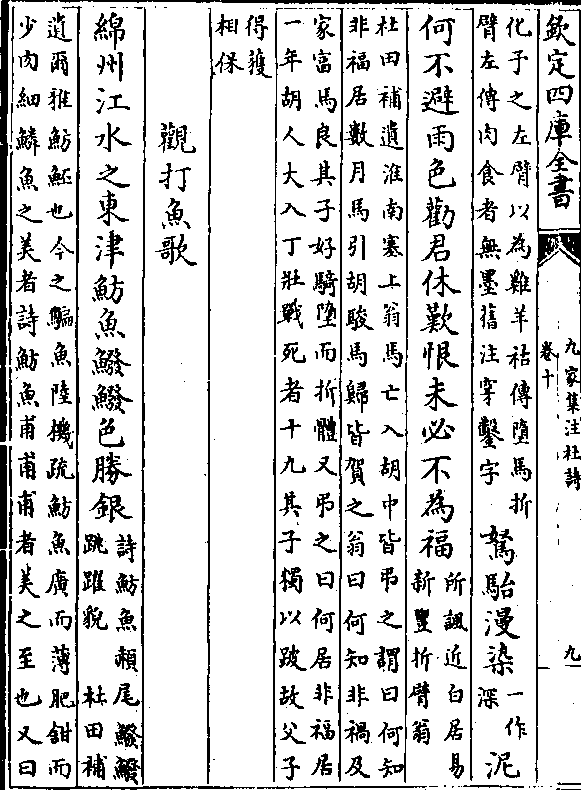 欽定四庫全書
九家集注杜詩
卷十
九
化予之左臂以為雞羊祜傳墮馬折
臂左傳肉食者無墨舊注穿鑿字
駑駘漫染
一作
深
泥
何不避雨色勸君休歎恨未必不為福
所諷近白居易
新豐折臂翁
杜田補遺淮南塞上翁馬亡入胡中皆弔之謂曰何知
非福居數月馬引胡駿馬歸皆賀之翁曰何知非禍及
家富馬良其子好騎墮而折體又弔之曰何居非福居
一年胡人大入丁壯戰死者十九其子獨以跛故父子
得獲
相保
觀打魚歌
綿州江水之東津魴魚鱍鱍色勝銀
詩魴魚赬尾鱍鱍
跳躍貌 杜田補
遺爾雅魴魾也今之鯿魚陸機疏魴魚廣而薄肥甜而
少肉細鱗魚之美者詩魴魚甫甫甫者美之至也又曰